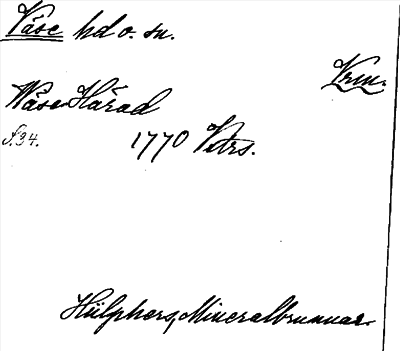 Väse hd o. sn.
Vrm.
Wäse Härad
S. 34.
1770 Vetrs.
Hülphers, Mineralbrunnar.